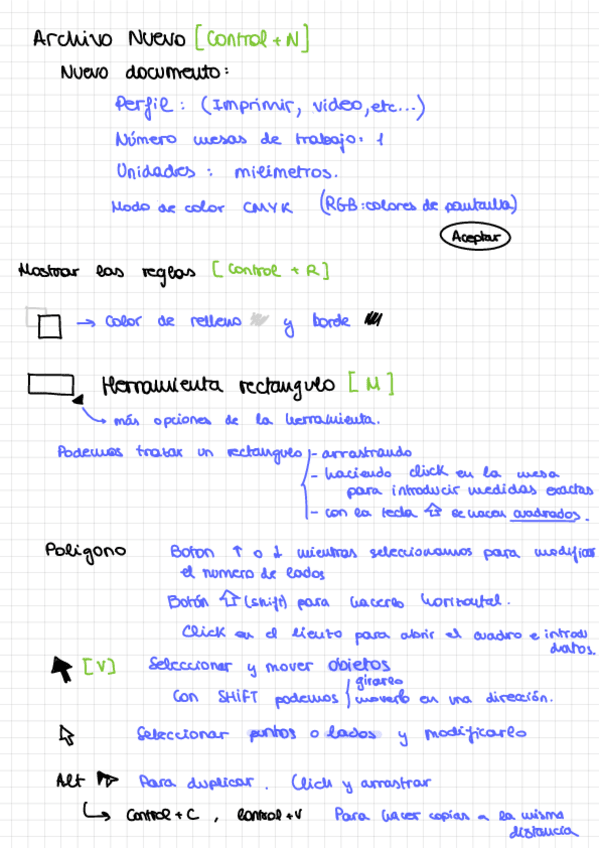 Archivo Nuevo [Control + N]
Nuevo documento:
Perfil : (Imprimir, video, etc...)
Número mesas de trabajo: 1
Unidades : milímetros.
Modo de color CMYK (RGB: colores de pantalla)
Aceptar
Mostrar las reglas [Control + R]
→ Color de relleno y borde
Herramienta rectangulo [M]
más opciones de la herramienta.
Podemos tratar un rectangulo - arrastrando
- haciendo click en la mesa
para introducir medidas exactas
- con la tecla ⇧ se hacen cuadrados.
Poligono Boton ↑ o ↓ mientras seleccionamos para modificar
el numero de lados
Botón ⇧ (shift) para hacerlo horizontal.
Click en el lienzo para abrir el cuadro e introdu
datos.
[V] Seleccionar y mover objetos
girarlo
Con SHIFT podemos moverlo en una dirección.
Seleccionar puntos o lados y modificarlo
Alt Para duplicar. Click y arrastrar
Control + C , Control + V Para hacer copias a la misma
distancia